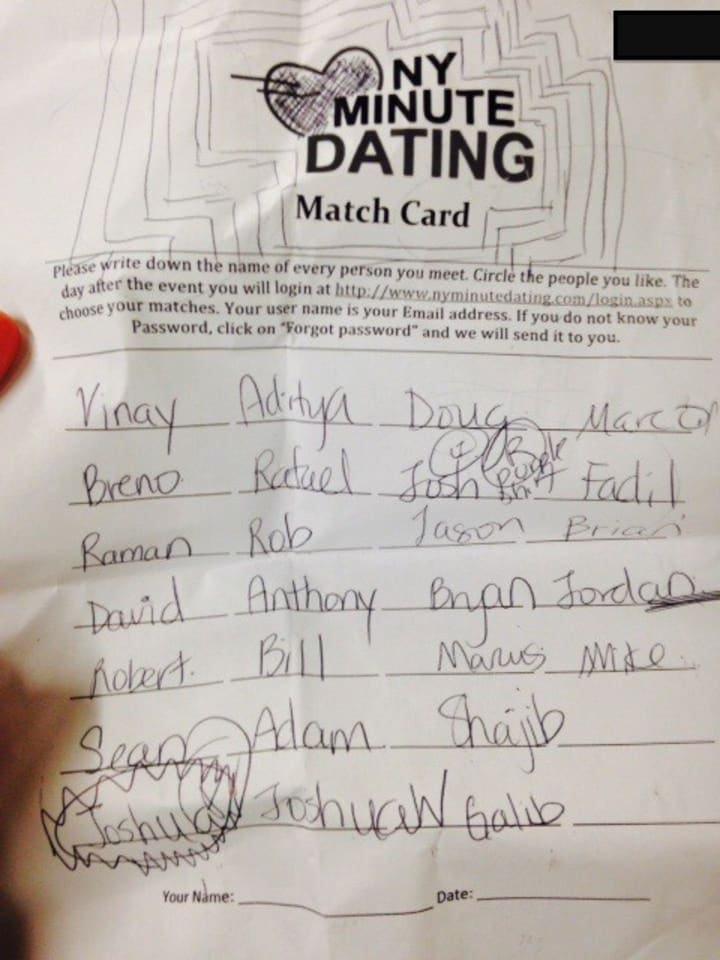 NY
MINUTE
DATING
Match Card
Please write down the name of every person you meet. Circle the people you like. The
day after the event you will login at http://www.nyminutedating.com/login.aspx to
choose your matches. Your user name is your Email address. If you do not know your
Password, click on "Forgot password" and we will send it to you.
Vinay Aditya Doug Marc
Breno Rafael Josh Purple Shirt Fadil
Raman Rob Jason Brian
David Anthony Bryan Jordan
Robert. Bill Marius Mike
Sean Adam Shajib
Joshua Joshua W Galib
Your Name: Date: